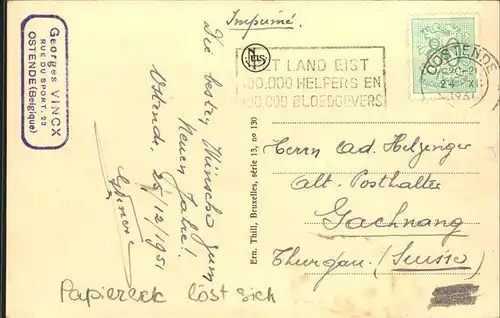 Imprimé.
Georges VINCX
RUE DU SPORT. 22
OSTENDE (Belgique)
T LAND EIST
00.000 HELPERS EN
00.000 BLOEDGEVERS
OOSTENDE
Die besten Wünsche zum
Neuen Jahre!
Ostende, 23/12/1951
GVincx
Ern. Thill, Bruxelles, série 13, no 130
Herrn Ad. Helzinger
Alt. Posthalter
Gachnang
Thurgau. (Suisse)
Papiereck löst sich